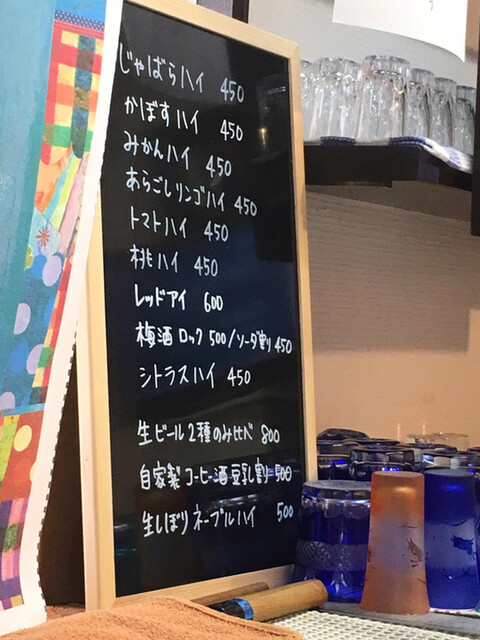 じゃばらハイ 450
かぼすハイ 450
みかんハイ 450
あらごしリンゴハイ 450
トマトハイ 450
桃ハイ 450
レッドアイ 600
梅酒 ロック 500/ソーダ割り 450
シトラスハイ 450
生ビール2種のみ比べ 800
自家製コーヒー酒 豆乳割り 500
生しぼりネーブルハイ 500